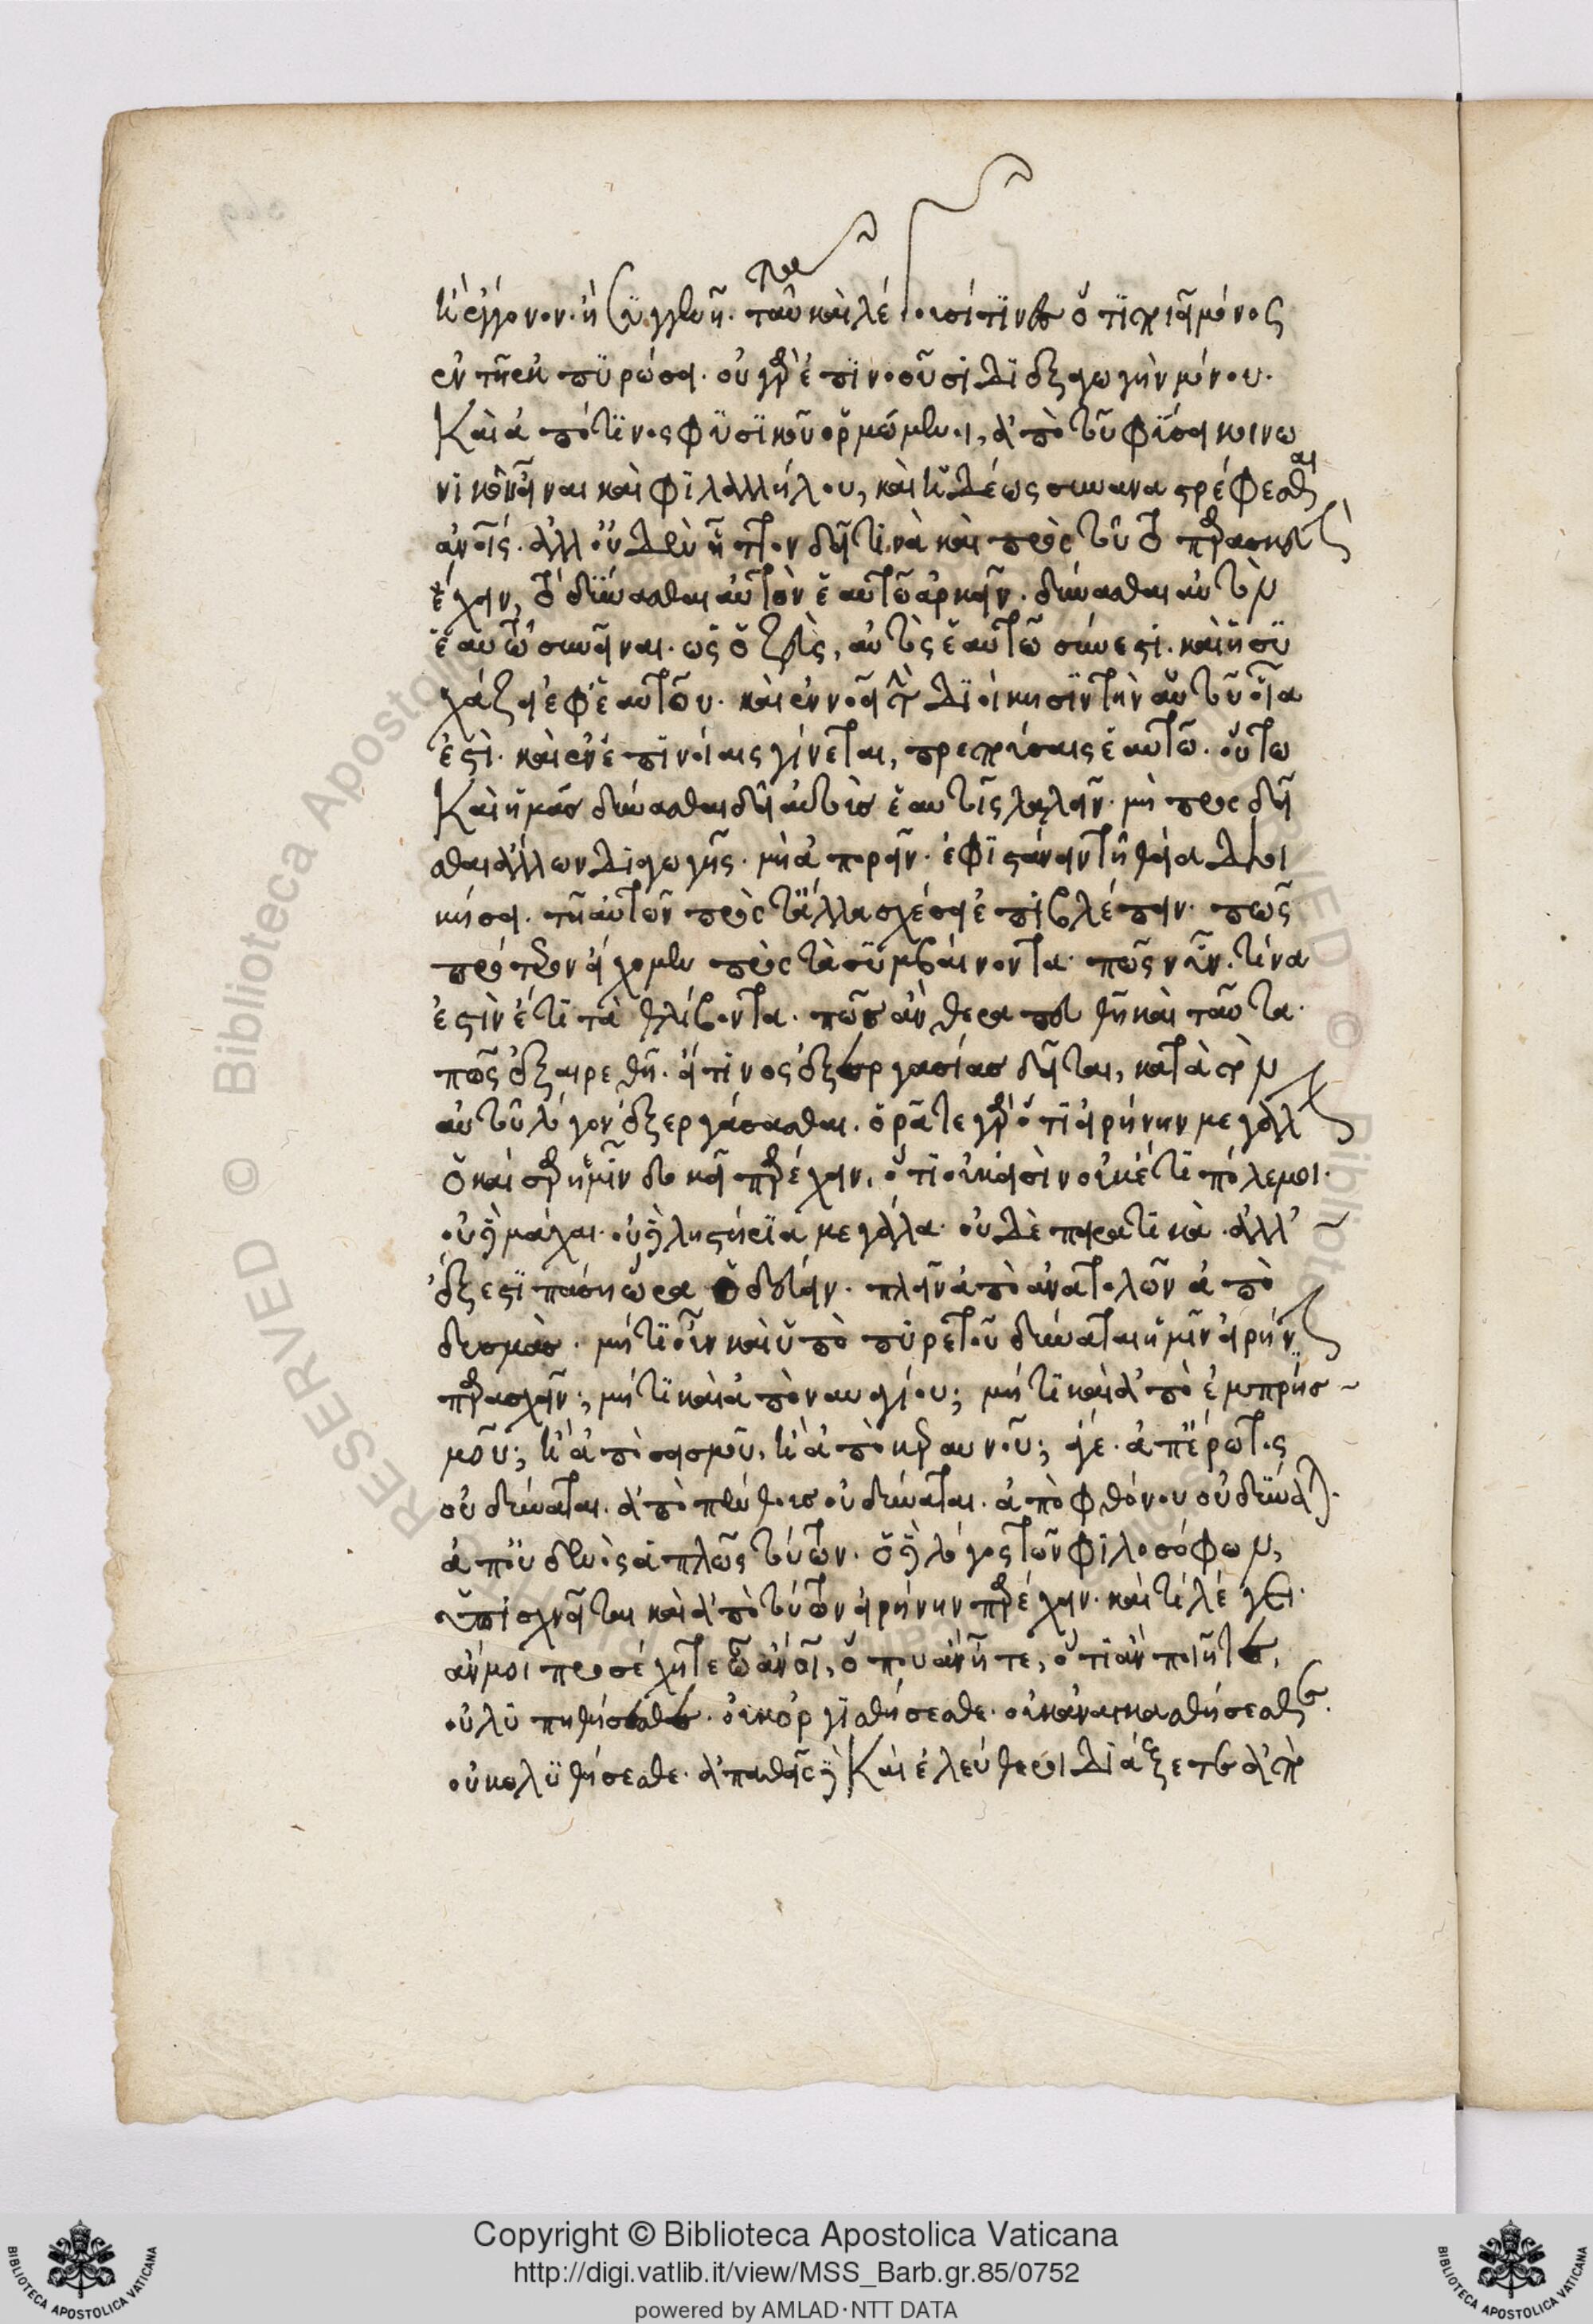 ἢ ἔγγονον· ἢ συγγενῆ. ταῦτα παρα καὶ λέγουσί τινες ὅτι ποιεῖ μόνος
ἐν τῇ ἐκπυρώσει. οὐ γὰρ ἐπινοοῦσι διεξαγωγὴν μόνου.
Καὶ ἀπό τινος φυσικοῦ ὁρμώμενοι, ἀπὸ τοῦ φύσει κοινω
νικοὺς εἶναι καὶ φιλαλλήλους, καὶ ἡδέως συναναστρέφεσθαι
ἀνοις. ἀλλ' οὐδὲν ἧττον δεῖ τινὰ καὶ πρὸς τοῦτο παρασκευὴν
ἔχειν, τὸ δύνασθαι αὐτὸν ἑαυτῶ ἀρκεῖν. δύνασθαι αὐτὸν
ἑαυτῶ συνεῖναι. ὡς ὁ Ζεὺς, αὐτὸς ἑαυτῶ σύνεστι. καὶ ἡσυ
χάζει ἐφ' ἑαυτοῦ. καὶ ἐννοεῖ τὴν διοίκησιν τὴν αὑτοῦ οἵα
ἐστὶ. καὶ ἐν ἐπινοίαις γίνεται, πρεπούσαις ἑαυτῶ. οὕτω
Καὶ ἡμᾶς δύνασθαι δεῖ αὐτοὺς ἑαυτοῖς λαλεῖν. μὴ προσδεῖ
σθαι ἄλλων διαγωγῆς. μὴ ἀπορεῖν. ἐφιστάνειν τῇ θείᾳ διοι
κήσει. τῇ αὐτῶν πρὸς τἄλλα σχέσει ἐπιβλέπειν. πῶς
πρότερον εἴχομεν πρὸς τὰ συμβαίνοντα. πῶς νῦν. τίνα
ἐστὶν ἔτι τὰ θλίβοντα. πῶς ἂν θεραπευθῇ καὶ ταῦτα.
πῶς ἐξαιρεθῇ. εἴ τινος ἐξεργασίας δεῖται, κατὰ τὸν
αὐτοῦ λόγον ἐξεργάσασθαι. ὁρᾶτε γὰρ ὅτι εἰρήνην μεγάλην
ὁ καίσαρ ἡμῖν δοκεῖ παρέχειν, ὅτι οὐκ εἰσὶν οὐκέτι πόλεμοι.
οὐδὲ μάχαι. οὐδὲ λῃστήρια μεγάλα. οὐδὲ πειρατικὰ. ἀλλ'
ἔξεστι πάσῃ ὥρᾳ ὁδεύειν. πλεῖν ἀπὸ ἀνατολῶν ἀπὸ
δυσμὰς. μήτι οὖν καὶ ὑπὸ πυρετοῦ δύναται ἡμῖν εἰρήνην
παρασχεῖν; μήτι καὶ ἀπὸ ναυαγίου; μήτι καὶ ἀπὸ ἐμπρησ
μοῦ; ἢ ἀπὸ σεισμοῦ. ἢ ἀπὸ κεραυνοῦ; ἄγε. ἀπ' ἔρωτος
οὐ δύναται. ἀπὸ πένθους οὐ δύναται. ἀπὸ φθόνου οὐ δύναται.
ἀπ' οὐδενὸς ἁπλῶς τούτων. ὁ δὲ λόγος τῶν φιλοσόφων,
ὑπισχνεῖται καὶ ἀπὸ τούτων εἰρήνην παρέχειν. καὶ τί λέγει·
ἄν μοι προσέχητε ὦ ἄνοι, ὅπου ἂν ἦτε, ὅτι ἂν ποιῆτε,
οὐ λυπηθήσεσθε. οὐκ ὀργισθήσεσθε. οὐκ ἀναγκασθήσεσθε.
οὐ κωλυθήσεσθε. ἀπαθεῖς δὲ Καὶ ἐλεύθεροι διάξετε ἀπὸ
Copyright © Biblioteca Apostolica Vaticana
http://digi.vatlib.it/view/MSS_Barb.gr.85/0752
powered by AMLAD·NTT DATA